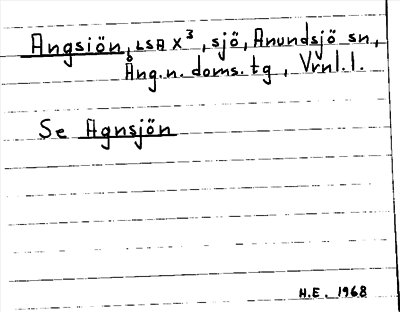 Angsiön, LSA X³, sjö, Anundsjö sn,
Ång.n. doms. tg, Vrnl.l.
Se Agnsjön
H.E. 1968